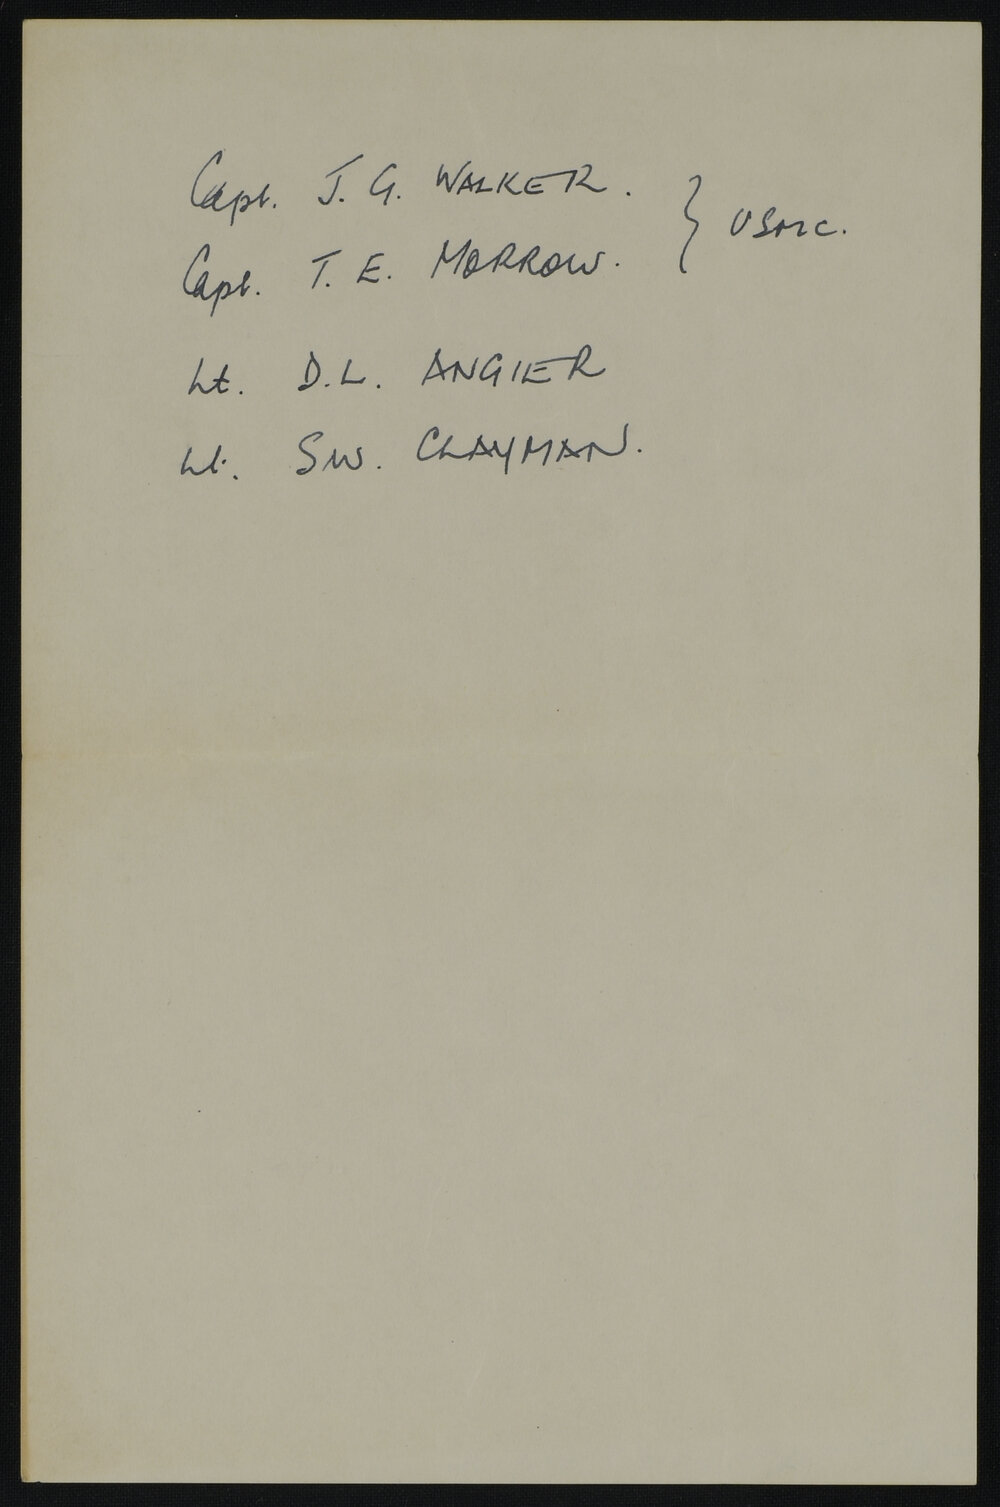 Capt. J. G. WALKER. } USMC.
Capt. T. E. MORROW.
Lt. D.L. ANGIER
Lt. SW. CLAYMAN.